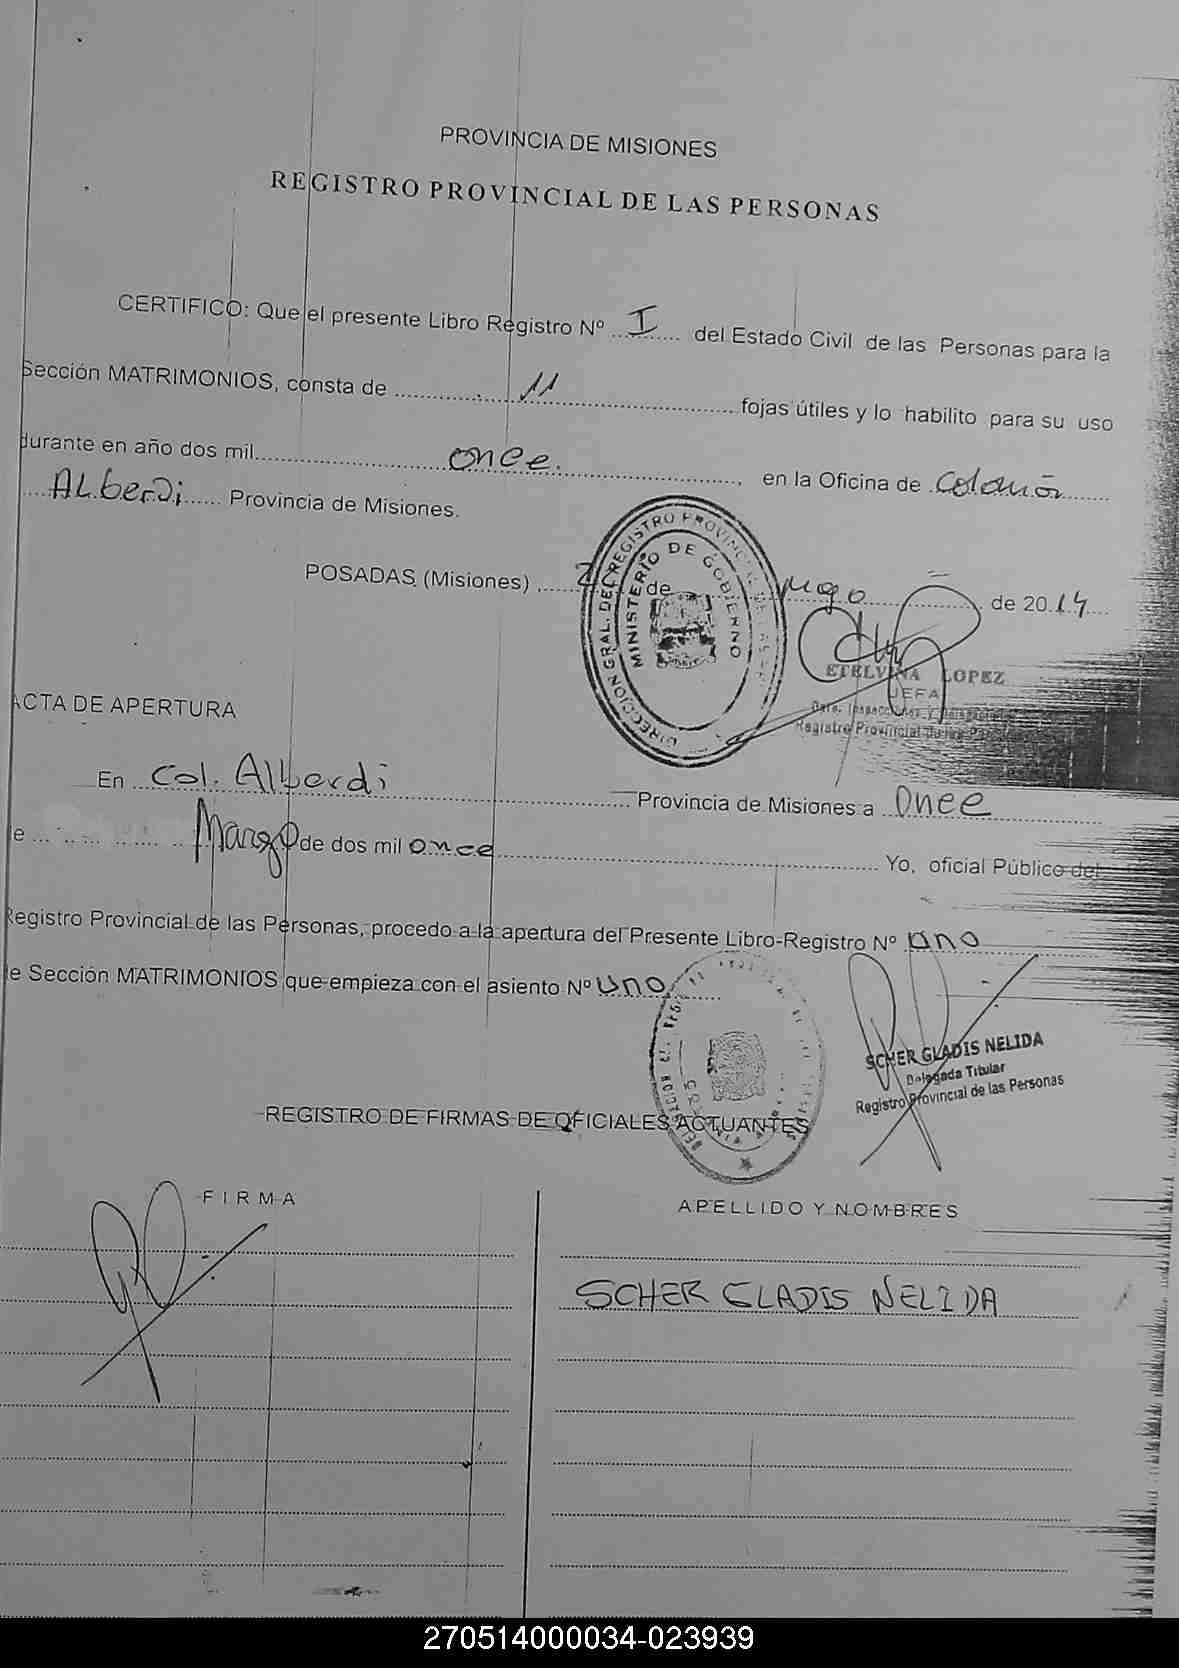 PROVINCIA DE MISIONES
REGISTRO PROVINCIAL DE LAS PERSONAS
CERTIFICO: Que el presente Libro Registro Nº I del Estado Civil de las Personas para la
Sección MATRIMONIOS, consta de 11 fojas útiles y lo habilito para su uso
durante en año dos mil once. en la Oficina de Colonia
ALberdi Provincia de Misiones.
POSADAS (Misiones) de de 2014
DIRECCION GRAL. DEL REGISTRO PROVINCIAL DE LAS
MINISTERIO DE GOBIERNO
ETELVINA LOPEZ
JEFA
Registro Provincial de las
ACTA DE APERTURA
En Col. Alberdi Provincia de Misiones a Once
de Marzo de dos mil once Yo, oficial Público del
Registro Provincial de las Personas, procedo a la apertura del Presente Libro-Registro Nº uno
de Sección MATRIMONIOS que empieza con el asiento Nº Uno
SCHER GLADIS NELIDA
Delegada Titular
Registro Provincial de las Personas
REGISTRO DE FIRMAS DE OFICIALES ACTUANTES
FIRMA APELLIDO Y NOMBRES
SCHER GLADIS NELIDA
270514000034-023939